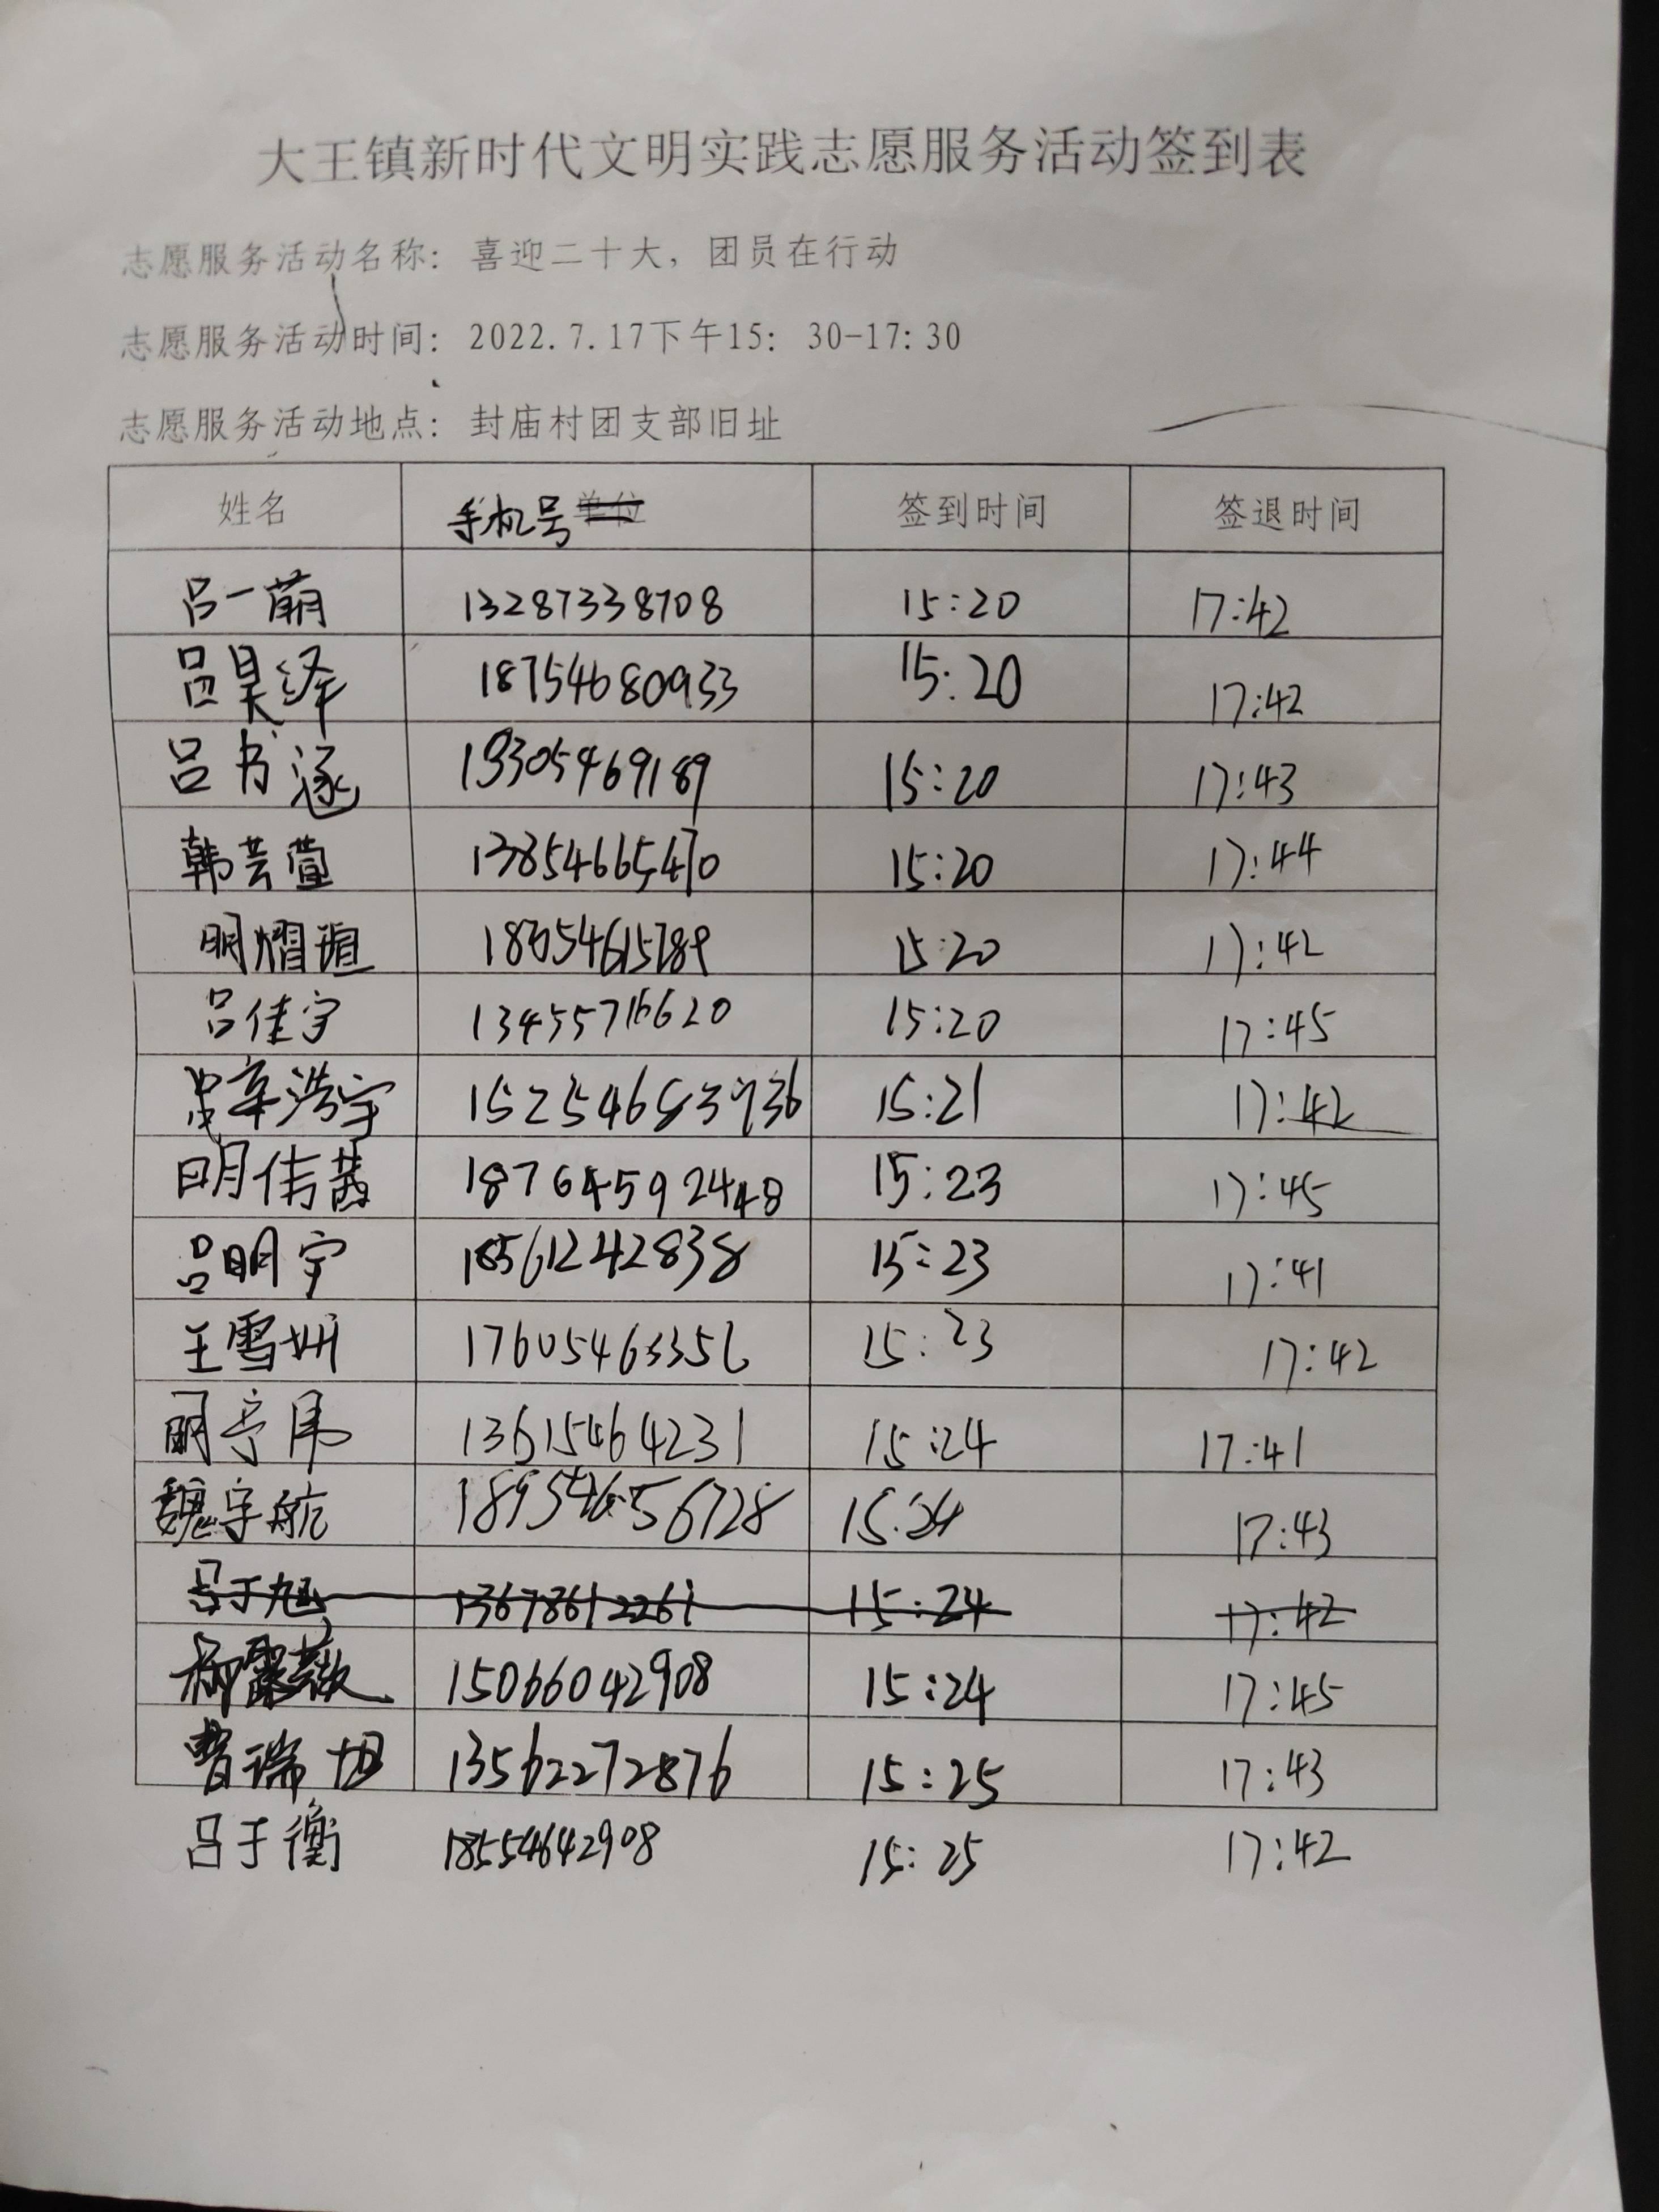 大王镇新时代文明实践志愿服务活动签到表
志愿服务活动名称：喜迎二十大，团员在行动
志愿服务活动时间：2022.7.17下午15：30-17:30
志愿服务活动地点：封庙村团支部旧址
姓名 手机号 单位 签到时间 签退时间
吕一萌 13287338708 15:20 17:42
吕昊泽 18754680933 15:20 17:42
吕书涵 15:20 17:43
韩芸萱 13854665470 15:20 17:44
明熠瑄 15:20 17:42
吕佳宇 13455716620 15:20 17:45
辛浩宇 15254683936 15:21 17:42
明伟茜 15:23 17:45
吕明宇 18561242838 15:23 17:41
王雪妍 17605463356 15:23 17:42
明宇伟 13615464231 15:24 17:41
魏宇航 18954656728 15:24 17:43
吕于旭 13678612261 15:24 17:42
柳霖薇 15066042908 15:24 17:45
曹瑞坦 13562272876 15:25 17:43
吕于衡 18554642908 15:25 17:42